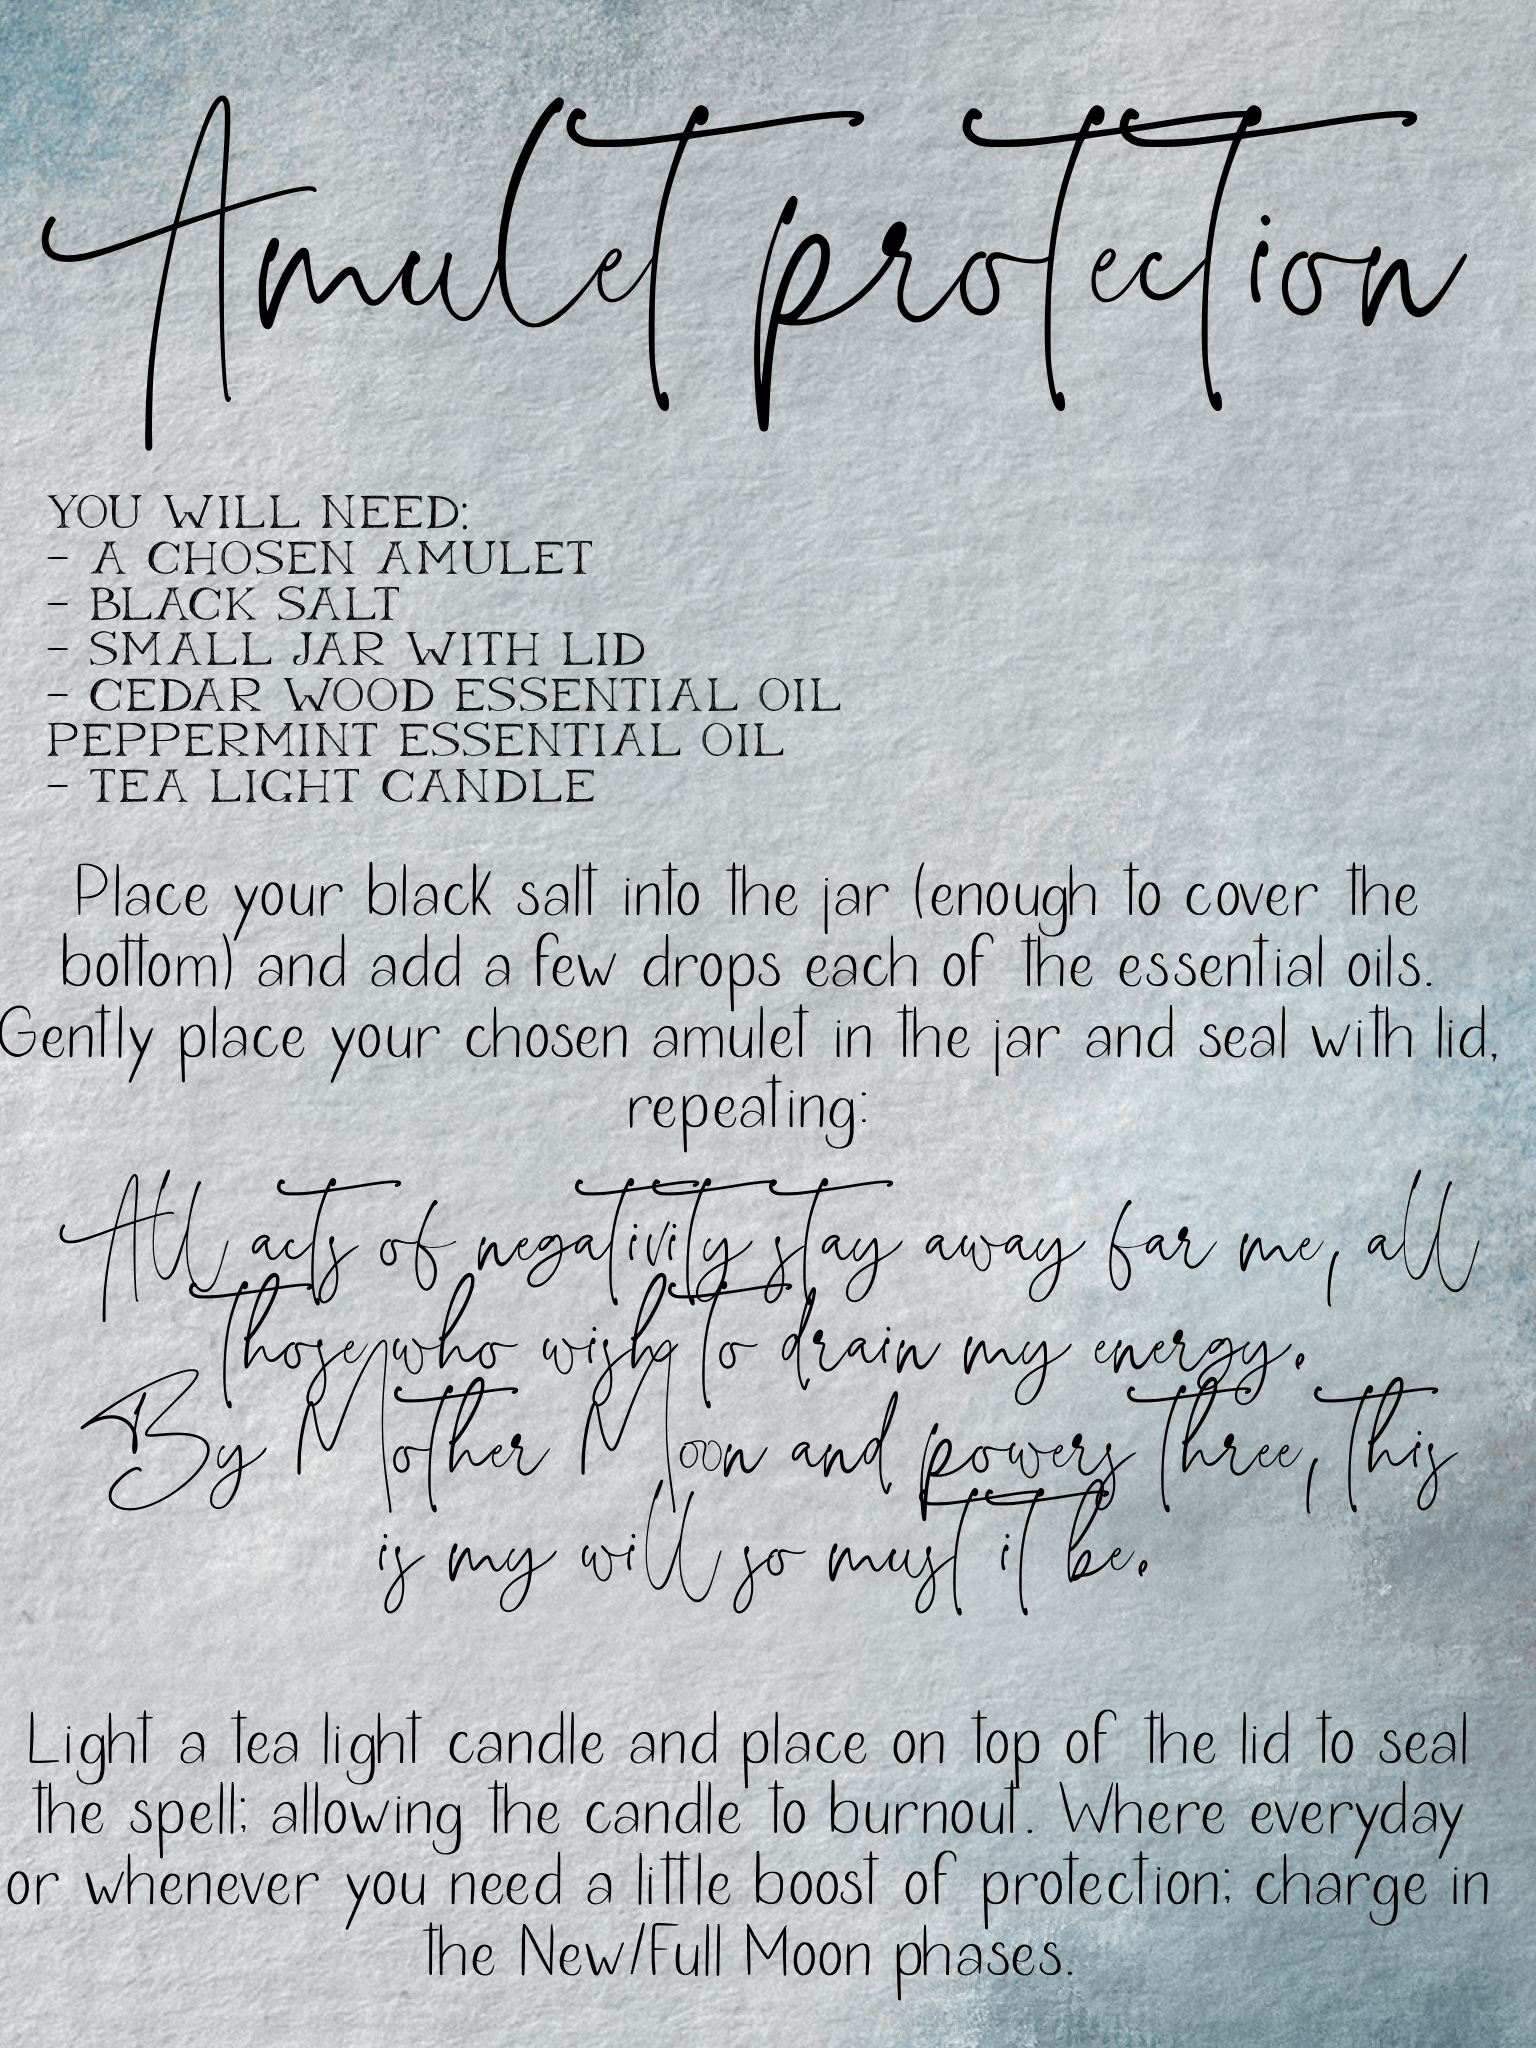 Amulet protection
YOU WILL NEED:
- A CHOSEN AMULET
- BLACK SALT
- SMALL JAR WITH LID
- CEDAR WOOD ESSENTIAL OIL
PEPPERMINT ESSENTIAL OIL
- TEA LIGHT CANDLE
Place your black salt into the jar (enough to cover the
bottom) and add a few drops each of the essential oils.
Gently place your chosen amulet in the jar and seal with lid,
repeating:
All acts of negativity stay away far me, all
those who wish to drain my energy.
By Mother Moon and powers three, this
is my will so must it be.
Light a tea light candle and place on top of the lid to seal
the spell; allowing the candle to burnout. Where everyday
or whenever you need a little boost of protection; charge in
the New/Full Moon phases.